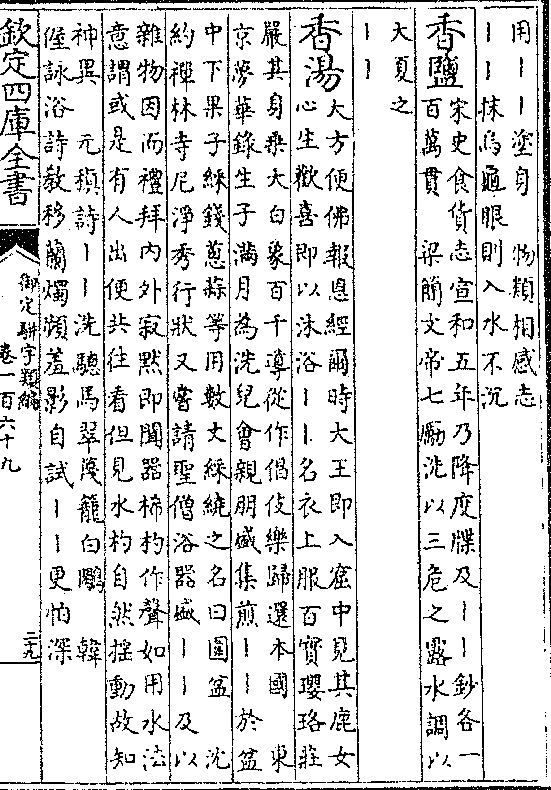 用丨丨塗身　物類相感志
丨丨抹烏龜眼則入水不沉
香鹽
宋史食貨志宣和五年乃降度牒及丨丨鈔各一
百萬貫　梁簡文帝七勵洗以三危之露水調以
大夏之
丨丨
香湯
大方便佛報恩經爾時大王即入窟中見其鹿女
心生歡喜即以沐浴丨丨名衣上服百寶瓔珞莊
嚴其身乘大白象百千導從作倡伎樂歸還本國　東
京夢華錄生子滿月為洗兒會親朋盛集煎丨丨於盆
中下果子綵錢蔥蒜等用數丈綵繞之名曰圍盆　沈
約禪林寺尼淨秀行狀又嘗請聖僧浴器盛丨丨及以
雜物因而禮拜內外寂默即聞器棓杓作聲如用水法
意謂或是有人出便共往看但見水杓自然搖動故知
神異　元稹詩丨丨洗驄馬翠篾籠白鷴　韓
偓詠浴詩教移蘭燭頻羞影自試丨丨更怕深
欽定四庫全書
御定駢字類編
卷一百六十九
二九